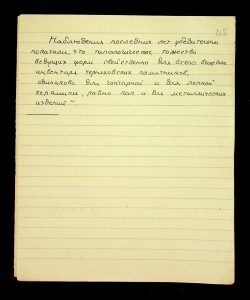 125
Наблюдения последних лет убедительно
показали, что типологическое тожество
ведущих форм свойственно для всего бытового
инвентаря черняховских памятников,
одинаково для гончарной и для лепной
керамики, равно как и для металлических
изделий"